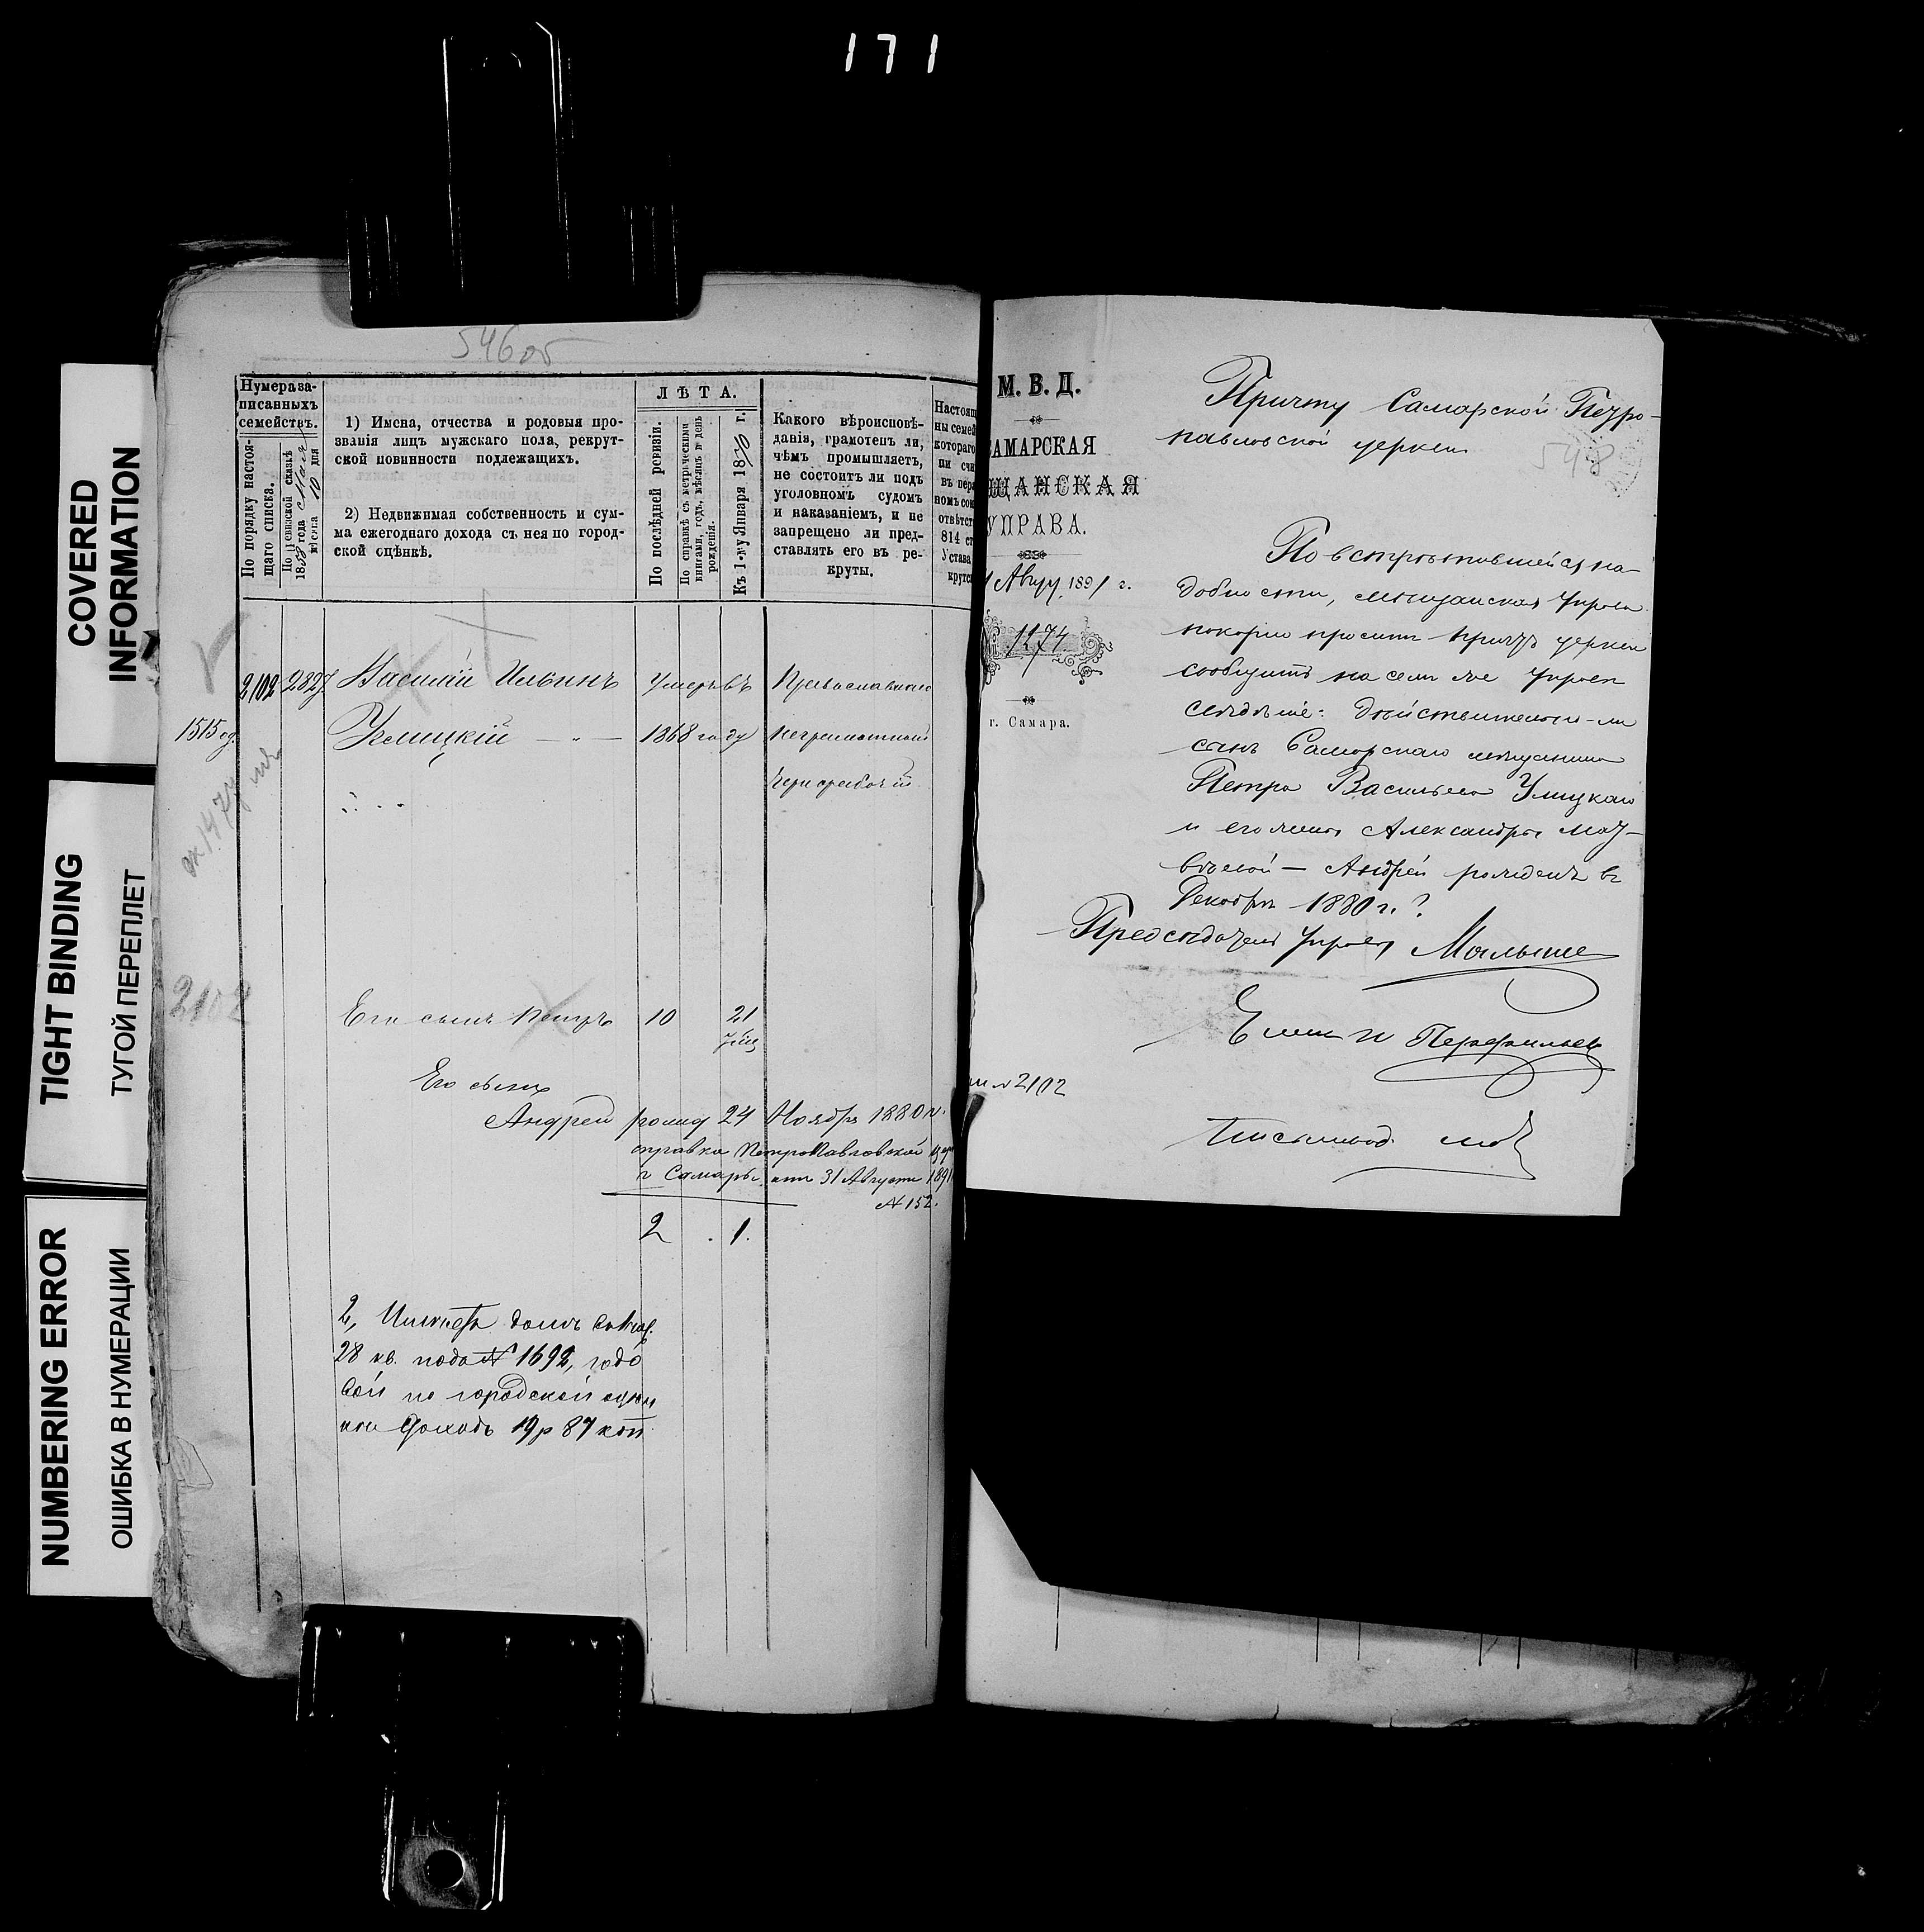 171
COVERED
INFORMATION
TIGHT BINDING
ТУГОЙ ПЕРЕПЛЕТ
NUMBERING ERROR
ОШИБКА В НУМЕРАЦИИ
546об
Нумера за-
писанныхъ
семействъ.
По порядку настоя-
щаго списка.
По ревизской сказкѣ
1858 года Мая
мѣсяца 10 дня
1) Имена, отчества и родовыя про-
званія лицъ мужскаго пола, рекрут-
ской повинности подлежащихъ.
2) Недвижимая собственность и сум-
ма ежегоднаго дохода съ нея по город-
ской оцѣнкѣ.
ЛѢТА.
По послѣдней ревизіи.
По справкѣ съ метрическими
книгами, годъ, мѣсяцъ и день
рожденія.
Къ 1-му Января 1870 г.
Какого вѣроисповѣ-
данія, грамотенъ ли,
чѣмъ промышляетъ,
не состоитъ ли подъ
уголовномъ судомъ
и наказаніемъ, и не
запрещено ли пред-
ставлять его въ ре-
круты.
Настоящ
ны семей
котораго
ли счи
въ пер
номъ сов
отвѣтст
814 ст
Устава
крутс
2102 2827 Василій Ильинъ Умеръ въ Православнаго
1515 Улицкій — „ — 1868 году неграмотный
Чернорабочій
2102
Его сынъ Петръ 10 21
Его сынъ
Андрей рожд 24 Ноября 1880 г.
справка Петропавловской цер
г Самары, отъ 31 Августа 1891
№ 152.
2 . 1.
2, Имѣетъ домъ
28 кв. подъ № 1692, годо
вой по городской оцѣн
кѣ доходъ 19 р 87 коп
М. В. Д.
САМАРСКАЯ
ЩАНСКАЯ
УПРАВА.
Авгу 1891 г.
№ 1174
г. Самара.
№ 2102
Причту Самарской Петро-
павловской церкви
548
По встрѣтившейся на-
добности, мѣщанская Управа
покорно проситъ причтъ церкви
сообщить на семъ же Управѣ
свѣдѣніе: дѣйствительно-ли
сынъ Самарскаго мѣщанина
Петра Васильева Улицкаго
и его жены Александры Мат-
вѣевой — Андрей рожденъ въ
Декабрѣ 1880 г.?
Предсѣдатель Управы Малыше
Члены Перфильев
Письмовод.